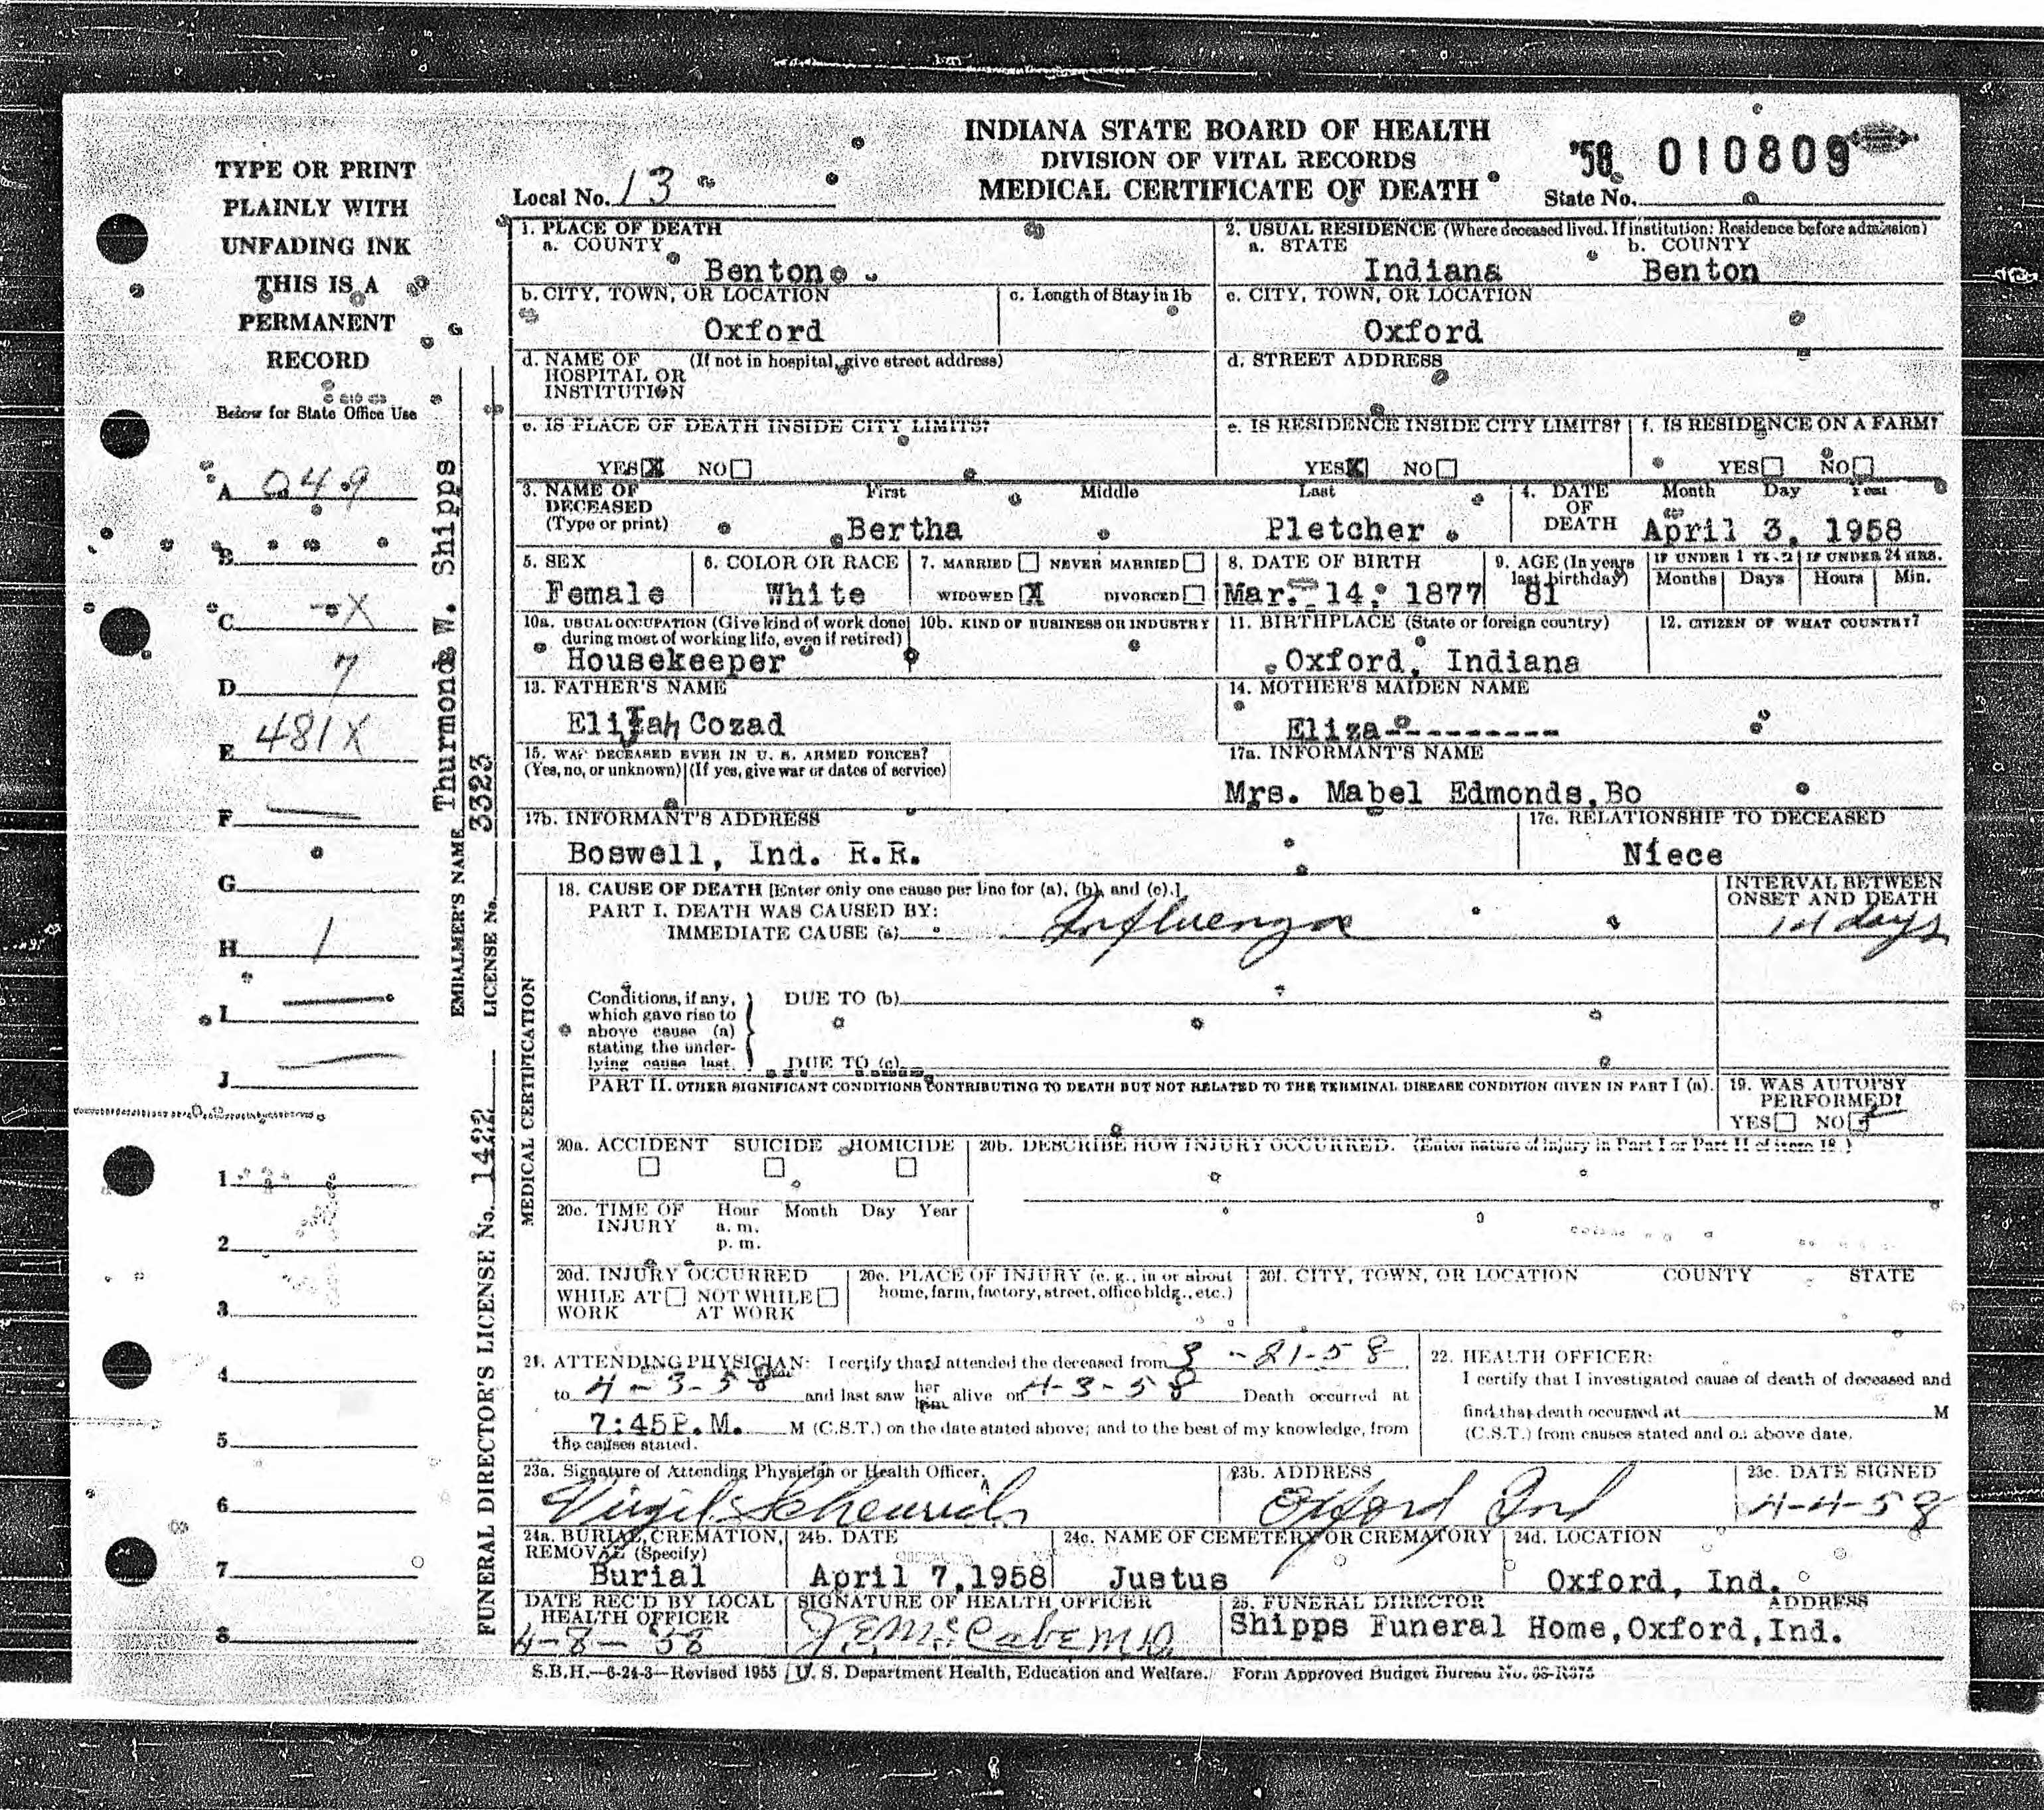 INDIANA STATE BOARD OF HEALTH
DIVISION OF VITAL RECORDS
MEDICAL CERTIFICATE OF DEATH
Local No. 13
'58 010809
State No.
TYPE OR PRINT
PLAINLY WITH
UNFADING INK
THIS IS A
PERMANENT
RECORD
Below for State Office Use
A 049
B
C X
D 7
E 481X
F
G
H 1
I
J
1
2
3
4
5
6
7
8
EMBALMER'S NAME Thurmond W. Shipps
LICENSE No. 3323
FUNERAL DIRECTOR'S LICENSE No. 1422
1. PLACE OF DEATH
a. COUNTY
Benton
2. USUAL RESIDENCE (Where deceased lived. If institution: Residence before admission)
a. STATE b. COUNTY
Indiana Benton
b. CITY, TOWN, OR LOCATION c. Length of Stay in 1b
Oxford
c. CITY, TOWN, OR LOCATION
Oxford
d. NAME OF (If not in hospital, give street address)
HOSPITAL OR
INSTITUTION
d. STREET ADDRESS
e. IS PLACE OF DEATH INSIDE CITY LIMITS?
YES X NO
e. IS RESIDENCE INSIDE CITY LIMITS? f. IS RESIDENCE ON A FARM?
YES X NO YES NO
3. NAME OF First Middle Last
DECEASED
(Type or print) Bertha Pletcher
4. DATE Month Day Year
OF
DEATH April 3, 1958
5. SEX
Female
6. COLOR OR RACE
White
7. MARRIED NEVER MARRIED
WIDOWED X DIVORCED
8. DATE OF BIRTH
Mar. 14, 1877
9. AGE (In years
last birthday)
81
IF UNDER 1 YR. IF UNDER 24 HRS.
Months Days Hours Min.
10a. USUAL OCCUPATION (Give kind of work done
during most of working life, even if retired)
Housekeeper
10b. KIND OF BUSINESS OR INDUSTRY
11. BIRTHPLACE (State or foreign country)
Oxford, Indiana
12. CITIZEN OF WHAT COUNTRY?
13. FATHER'S NAME
Elijah Cozad
14. MOTHER'S MAIDEN NAME
Eliza----------
15. WAS DECEASED EVER IN U. S. ARMED FORCES?
(Yes, no, or unknown) (If yes, give war or dates of service)
17a. INFORMANT'S NAME
Mrs. Mabel Edmonds, Bo
17b. INFORMANT'S ADDRESS
Boswell, Ind. R.R.
17c. RELATIONSHIP TO DECEASED
Niece
MEDICAL CERTIFICATION
18. CAUSE OF DEATH [Enter only one cause per line for (a), (b), and (c).]
PART I. DEATH WAS CAUSED BY:
IMMEDIATE CAUSE (a) Influenza
INTERVAL BETWEEN
ONSET AND DEATH
14 days
Conditions, if any,
which gave rise to
above cause (a)
stating the under-
lying cause last.
DUE TO (b)
DUE TO (c)
PART II. OTHER SIGNIFICANT CONDITIONS CONTRIBUTING TO DEATH BUT NOT RELATED TO THE TERMINAL DISEASE CONDITION GIVEN IN PART I (a).
19. WAS AUTOPSY
PERFORMED?
YES NO
20a. ACCIDENT SUICIDE HOMICIDE
20b. DESCRIBE HOW INJURY OCCURRED. (Enter nature of injury in Part I or Part II of item 18.)
20c. TIME OF Hour Month Day Year
INJURY a. m.
p. m.
20d. INJURY OCCURRED
WHILE AT NOT WHILE
WORK AT WORK
20e. PLACE OF INJURY (e. g., in or about
home, farm, factory, street, office bldg., etc.)
20f. CITY, TOWN, OR LOCATION COUNTY STATE
21. ATTENDING PHYSICIAN: I certify that I attended the deceased from 3-21-58
to 4-3-58 and last saw her him alive on 4-3-58 Death occurred at
7:45P.M. M (C.S.T.) on the date stated above; and to the best of my knowledge, from
the causes stated.
22. HEALTH OFFICER:
I certify that I investigated cause of death of deceased and
find that death occurred at M
(C.S.T.) from causes stated and on above date.
23a. Signature of Attending Physician or Health Officer.
Virgil Scheurich
23b. ADDRESS
Oxford Ind
23c. DATE SIGNED
4-4-58
24a. BURIAL, CREMATION,
REMOVAL (Specify)
Burial
24b. DATE
April 7, 1958
24c. NAME OF CEMETERY OR CREMATORY
Justus
24d. LOCATION
Oxford, Ind.
DATE REC'D BY LOCAL
HEALTH OFFICER
4-8-58
SIGNATURE OF HEALTH OFFICER
McCabe M.D.
25. FUNERAL DIRECTOR ADDRESS
Shipps Funeral Home, Oxford, Ind.
S.B.H.—6-24-3—Revised 1955 U. S. Department Health, Education and Welfare. Form Approved Budget Bureau No. 68-R375